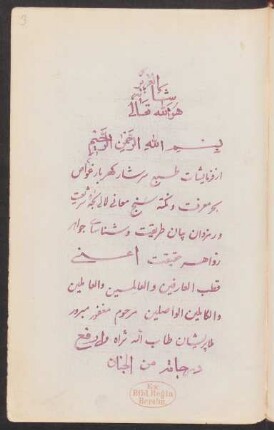 هو الله تعالی
بسم الله الرحمن الرحیم
از فرمایشات طبع سرشار گهربار غواص
بحر معرفت و نکته سنج معانی لالی بحر شریعت
و رمزدان چان طریقت و شناسای جواهر
زواهر حقیقت اعنی
قطب العارفین و العالمین و العاملین
و الکاملین الواصلین مرحوم مغفور مبرور
طاب الله ثراه و رفع
درجاته من الجنان
Ex
Bibl. Regia
Berolin.